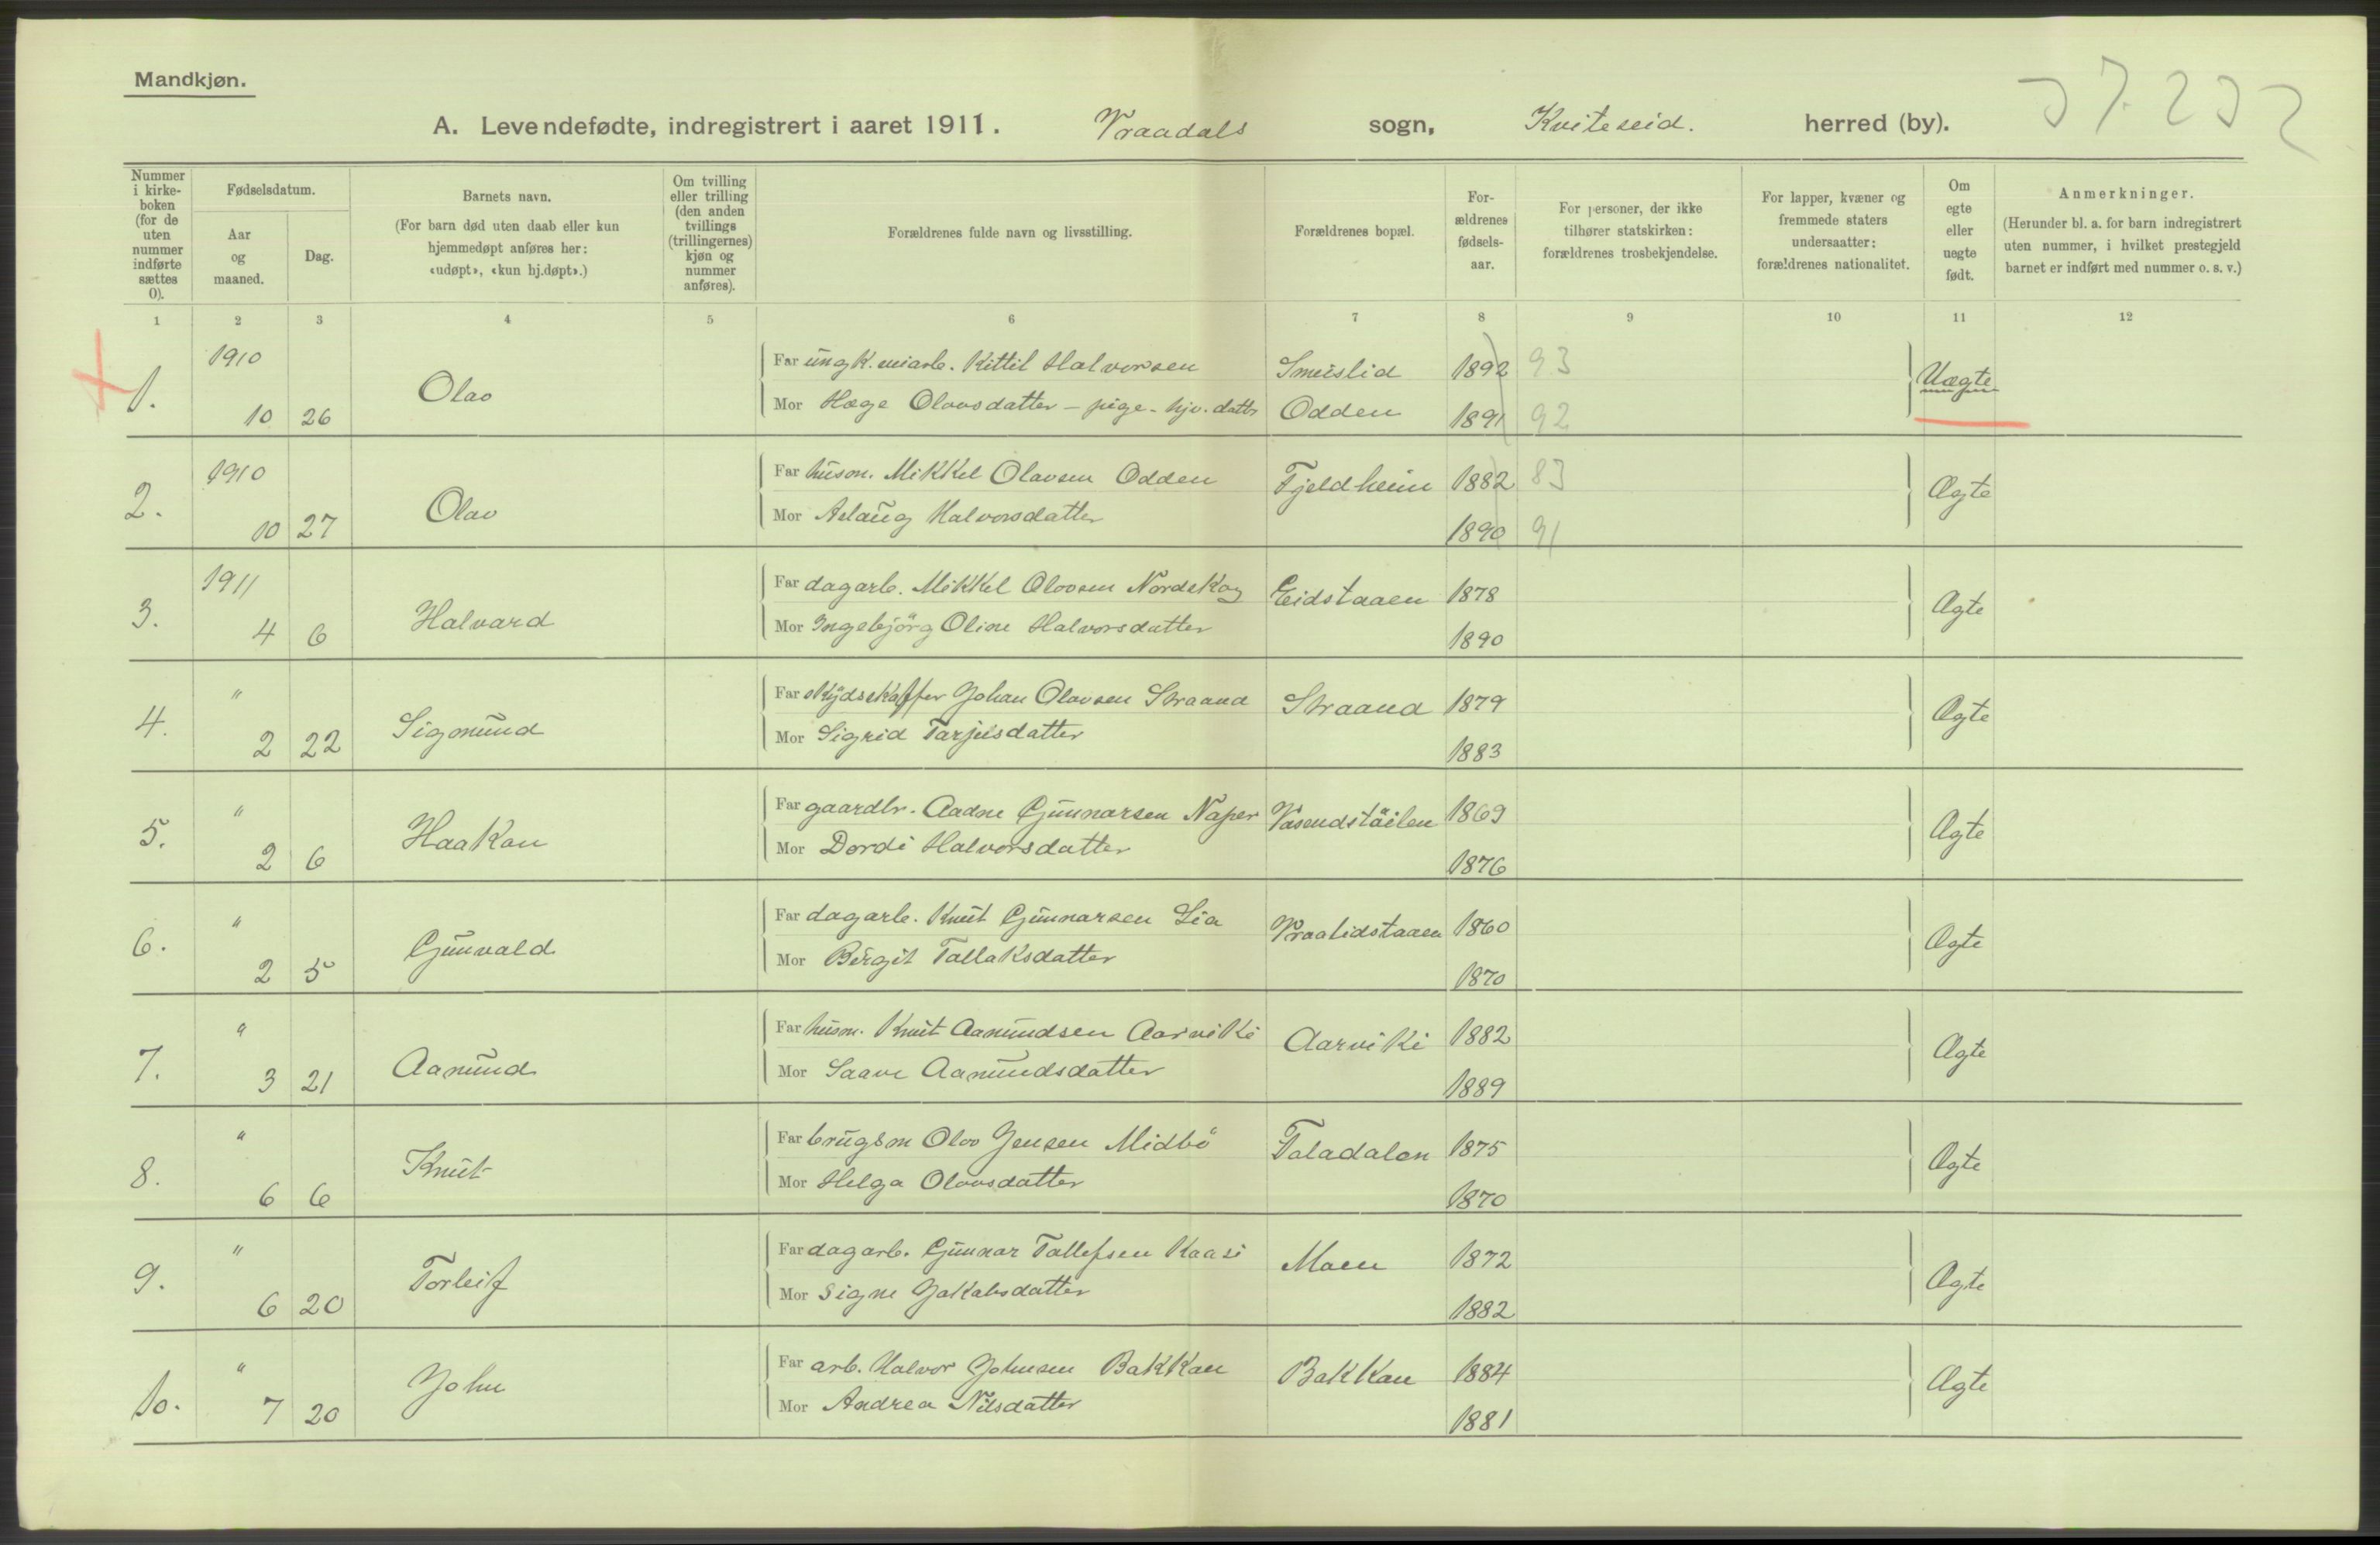 Mandkjøn.
A. Levendefødte, indregistrert i aaret 1911. Vraadals sogn, Kviteseid. herred (by).
Nummer i kirke-boken (for de uten nummer indførte sættes 0).
Fødselsdatum.
Aar og maaned.
Dag.
Barnets navn.
(For barn død uten daab eller kun hjemmedøpt anføres her: «udøpt», «kun hj.døpt».)
Om tvilling eller trilling (den anden tvillings (trillingernes) kjøn og nummer anføres).
Forældrenes fulde navn og livsstilling.
Forældrenes bopæl.
For-ældrenes fødsels-aar.
For personer, der ikke tilhører statskirken: forældrenes trosbekjendelse.
For lapper, kvæner og fremmede staters undersaatter: forældrenes nationalitet.
Om egte eller uegte født.
Anmerkninger.
(Herunder bl. a. for barn indregistrert uten nummer, i hvilket prestegjeld barnet er indført med nummer o. s. v.)
1 2 3 4 5 6 7 8 9 10 11 12
1. 1910 10 26 Olav
Far ungk. Kittil Halvorsen Smeislid 1892 93
Mor Hæge Olavsdatter – pige - hjv. datter Odden 1891 92
Uægte
2. 1910 10 27 Olav
Far husm. Mikkel Olavsen Odden Fjeldheim 1882 83
Mor Aslaug Halvorsdatter 1890 91
Ægte
3. 1911 4 6 Halvard
Far dagarb. Mikkel Olovsen Nordskog Eidstaaen 1878
Mor Ingebjörg Oline Halvorsdatter 1890
Ægte
4. " 2 22 Sigmund
Far skydsskaffer Johan Olavsen Straand Straand 1879
Mor Sigrid Tarjeisdatter 1883
Ægte
5. " 2 6 Haakon
Far gaardbr. Aadne Gunnarsen Naper 1869
Mor Dordi Halvorsdatter 1876
Ægte
6. " 2 5 Gunvald
Far dagarb. Knut Gunnarsen Lia Vraalidstaaen 1860
Mor Birgit Tallaksdatter 1870
Ægte
7. " 3 21 Aamund
Far husm. Knut Aamundsen Aarviki Aarviki 1882
Mor Saave Aamundsdatter 1889
Ægte
8. " 6 6 Knut
Far brugsm Olov Jensen Midbö Taladalen 1875
Mor Helga Olavsdatter 1870
Ægte
9. " 6 20 Torleif
Far dagarb. Gunnar Tallefsen Kaasi Moen 1872
Mor Signe Jakabsdatter 1882
Ægte
10. " 7 20 John
Far arb. Halvor Johnsen Bakkan Bakkan 1884
Mor Andrea Nilsdatter 1881
Ægte